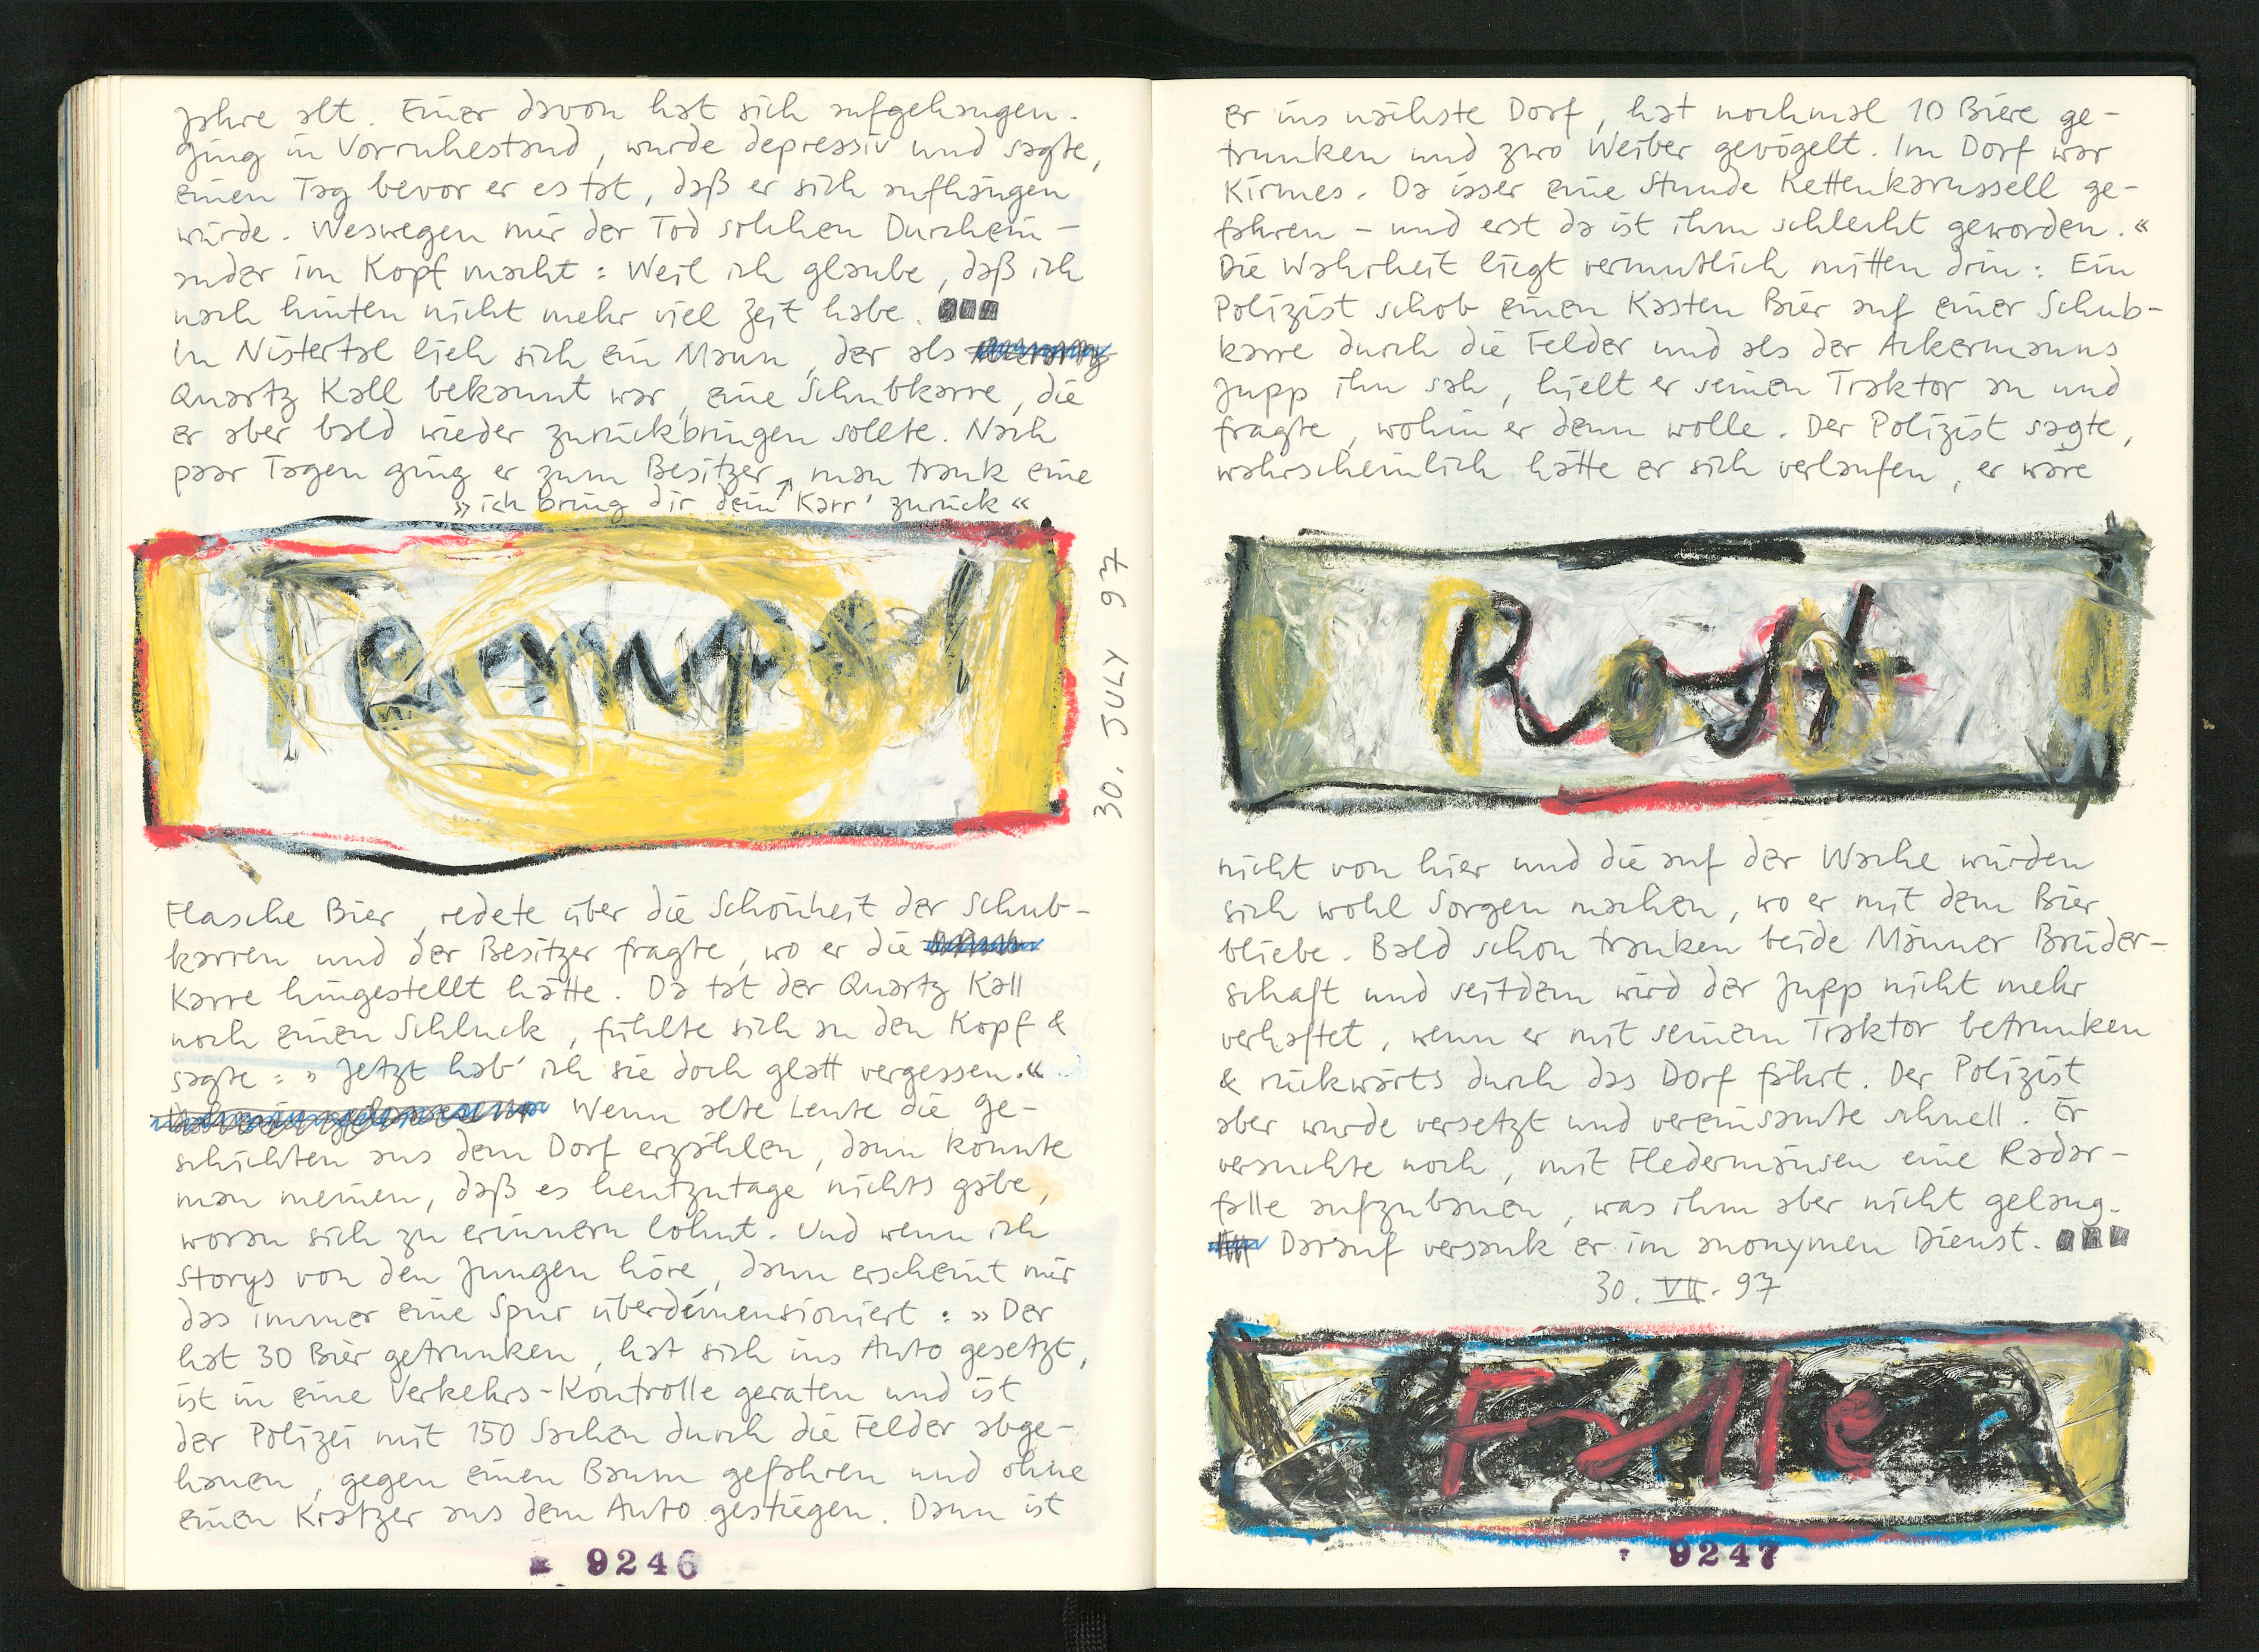 Jahre alt. Einer davon hat sich aufgehangen.
Ging in Vorruhestand, wurde depressiv und sagte,
einen Tag bevor er es tat, daß er sich aufhängen
würde. Weswegen mir der Tod solchen Durchein-
ander im Kopf macht: Weil ich glaube, daß ich
nach hinten nicht mehr viel Zeit habe.
Im Nistertal lieh sich ein Mann, der als
Quartz Kall bekannt war, eine Schubkarre, die
er aber bald wieder zurückbringen sollte. Nach
paar Tagen ging er zum Besitzer, man trank eine
»ich bring dir dein Karr' zurück«
Tempel
30. JULY 97
Flasche Bier, redete über die Schönheit der Schub-
karren und der Besitzer fragte, wo er die
Karre hingestellt hätte. Da tat der Quartz Kall
noch einen Schluck, fühlte sich an den Kopf &
sagte: »Jetzt hab' ich sie doch glatt vergessen.«
Wenn alte Leute die Ge-
schichten aus dem Dorf erzählen, dann könnte
man meinen, daß es heutzutage nichts gäbe,
woran sich zu erinnern lohnt. Und wenn ich
Storys von den Jungen höre, dann erscheint mir
das immer eine Spur überdimensioniert: »Der
hat 30 Bier getrunken, hat sich ins Auto gesetzt,
ist in eine Verkehrs-Kontrolle geraten und ist
der Polizei mit 150 Sachen durch die Felder abge-
hauen, gegen einen Baum gefahren und ohne
einen Kratzer aus dem Auto gestiegen. Dann ist
9246
er ins nächste Dorf, hat nochmal 10 Biere ge-
trunken und zwo Weiber gevögelt. Im Dorf war
Kirmes. Da isser eine Stunde Kettenkarussell ge-
fahren – und erst da ist ihm schlecht geworden.«
Die Wahrheit liegt vermutlich mitten drin: Ein
Polizist schob einen Kasten Bier auf einer Schub-
karre durch die Felder und als der Ackermanns
Jupp ihn sah, hielt er seinen Traktor an und
fragte, wohin er denn wolle. Der Polizist sagte,
wahrscheinlich hätte er sich verlaufen, er wäre
Rast
nicht von hier und die auf der Wache würden
sich wohl Sorgen machen, wo er mit dem Bier
bliebe. Bald schon tranken beide Männer Brüder-
schaft und seitdem wird der Jupp nicht mehr
verhaftet, wenn er mit seinem Traktor betrunken
& rückwärts durch das Dorf fährt. Der Polizist
aber wurde versetzt und vereinsamte schnell. Er
versuchte noch, mit Fledermäusen eine Radar-
falle aufzubauen, was ihm aber nicht gelang.
Darauf versank er im anonymen Dienst.
30. VII. 97
Falle
9247